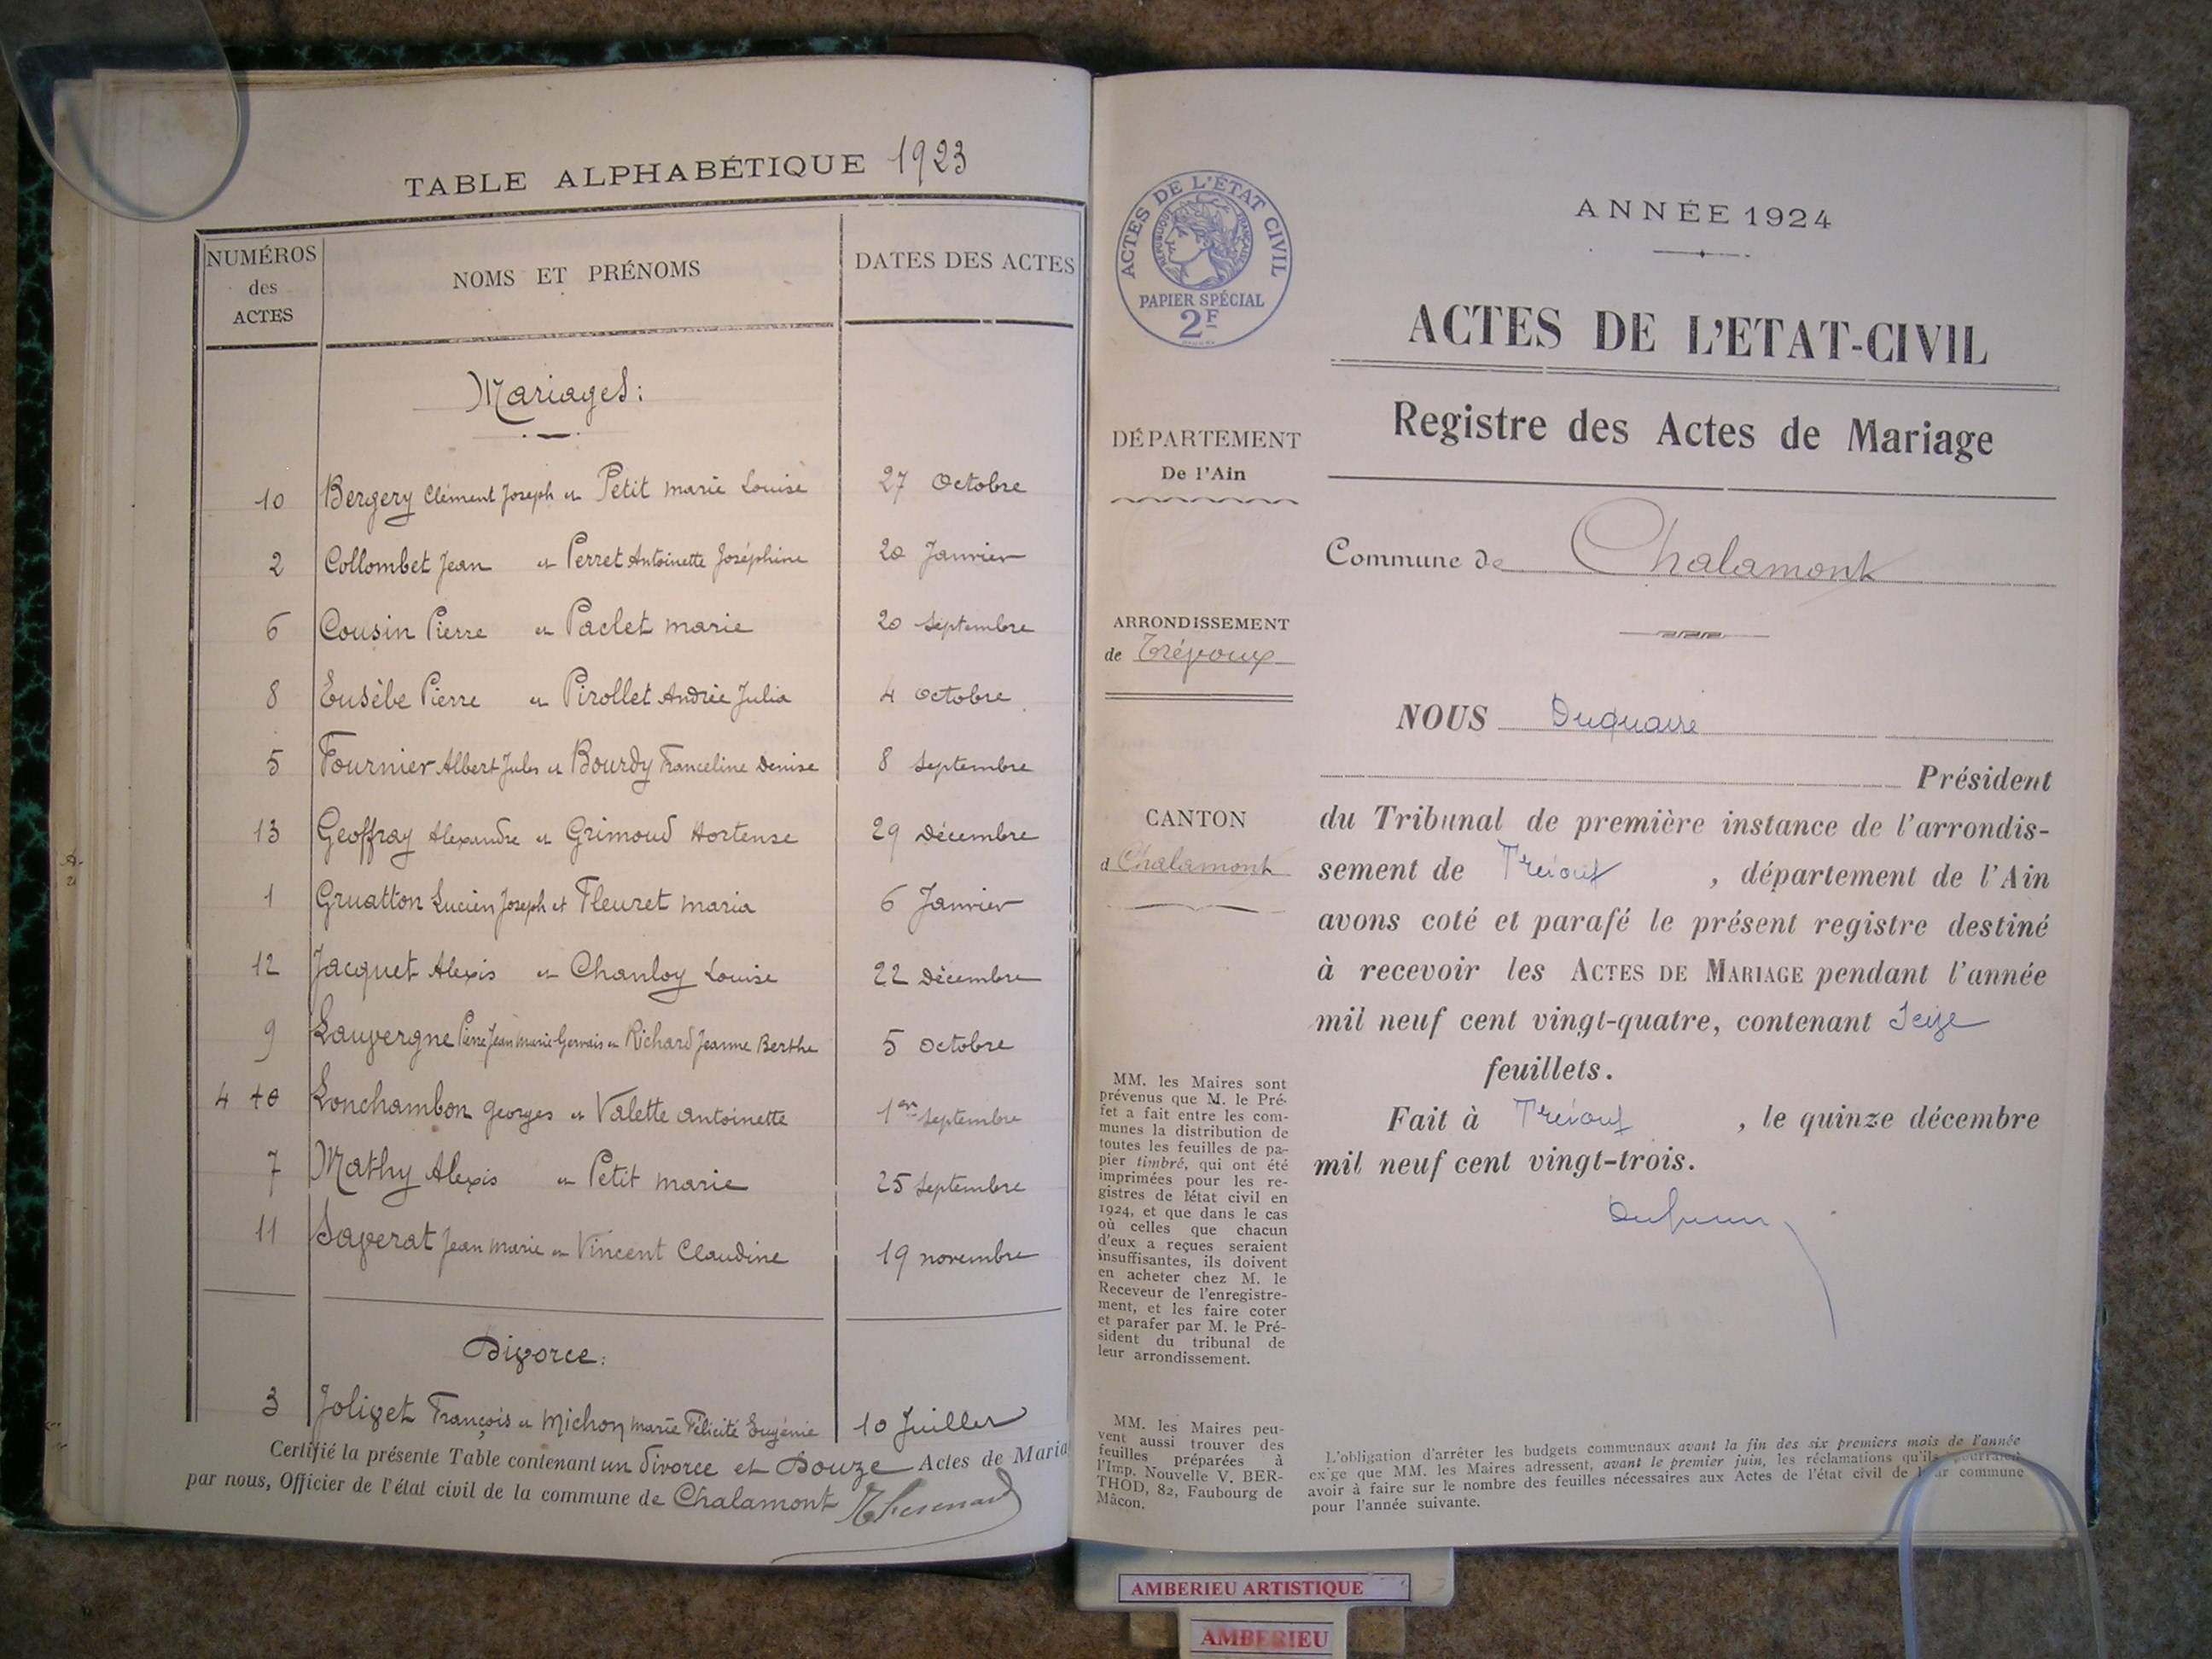 TABLE ALPHABÉTIQUE 1923
NUMÉROS des ACTES
NOMS ET PRÉNOMS
DATES DES ACTES
Mariages :
10 Bergery Clément Joseph et Petit marie Louise 27 Octobre
2 Collombet Jean et Perret Antoinette Joséphine 20 Janvier
6 Cousin Pierre et Paclet marie 20 Septembre
8 Eusèbe Pierre et Pirollet Andrée Julia 4 Octobre
5 Fournier Albert Jules et Bourdy Franceline Denise 8 Septembre
13 Geoffray Alexandre et Grimoud Hortense 29 Décembre
1 Gruatton Lucien Joseph et Fleuret maria 6 Janvier
12 Jacquet Alexis et Chanloy Louise 22 Décembre
9 Lauvergne Pierre Jean Marie Gervais et Richard Jeanne Berthe 5 Octobre
4 Lonchambon Georges et Valette Antoinette 1er Septembre
7 Mathy Alexis et Petit marie 25 Septembre
11 Saverat Jean Marie et Vincent Claudine 19 novembre
Divorce :
3 Jolivet François et Michon Marie Félicité Eugénie 10 Juillet
Certifié la présente Table contenant un divorce et Douze Actes de Maria
par nous, Officier de l'état civil de la commune de Chalamont
ACTES DE L'ÉTAT CIVIL
RÉPUBLIQUE FRANÇAISE
PAPIER SPÉCIAL
2F
DÉPARTEMENT
De l'Ain
ARRONDISSEMENT
de Trévoux
CANTON
d Chalamont
MM. les Maires sont
prévenus que M. le Pré-
fet a fait entre les com-
munes la distribution de
toutes les feuilles de pa-
pier timbré, qui ont été
imprimées pour les re-
gistres de l'état civil en
1924, et que dans le cas
où celles que chacun
d'eux a reçues seraient
insuffisantes, ils doivent
en acheter chez M. le
Receveur de l'enregistre-
ment, et les faire coter
et parafer par M. le Pré-
sident du tribunal de
leur arrondissement.
MM. les Maires peu-
vent aussi trouver des
feuilles préparées à
l'Imp. Nouvelle V. BER-
THOD, 82, Faubourg de
Mâcon.
ANNÉE 1924
ACTES DE L'ETAT-CIVIL
Registre des Actes de Mariage
Commune de Chalamont
NOUS Duquaire
Président
du Tribunal de première instance de l'arrondis-
sement de Trévoux , département de l'Ain
avons coté et parafé le présent registre destiné
à recevoir les ACTES DE MARIAGE pendant l'année
mil neuf cent vingt-quatre, contenant Seize
feuillets.
Fait à Trévoux , le quinze décembre
mil neuf cent vingt-trois.
L'obligation d'arrêter les budgets communaux avant la fin des six premiers mois de l'année
exige que MM. les Maires adressent, avant le premier juin, les réclamations qu'ils pourraient
avoir à faire sur le nombre des feuilles nécessaires aux Actes de l'état civil de leur commune
pour l'année suivante.
AMBERIEU ARTISTIQUE
AMBERIEU